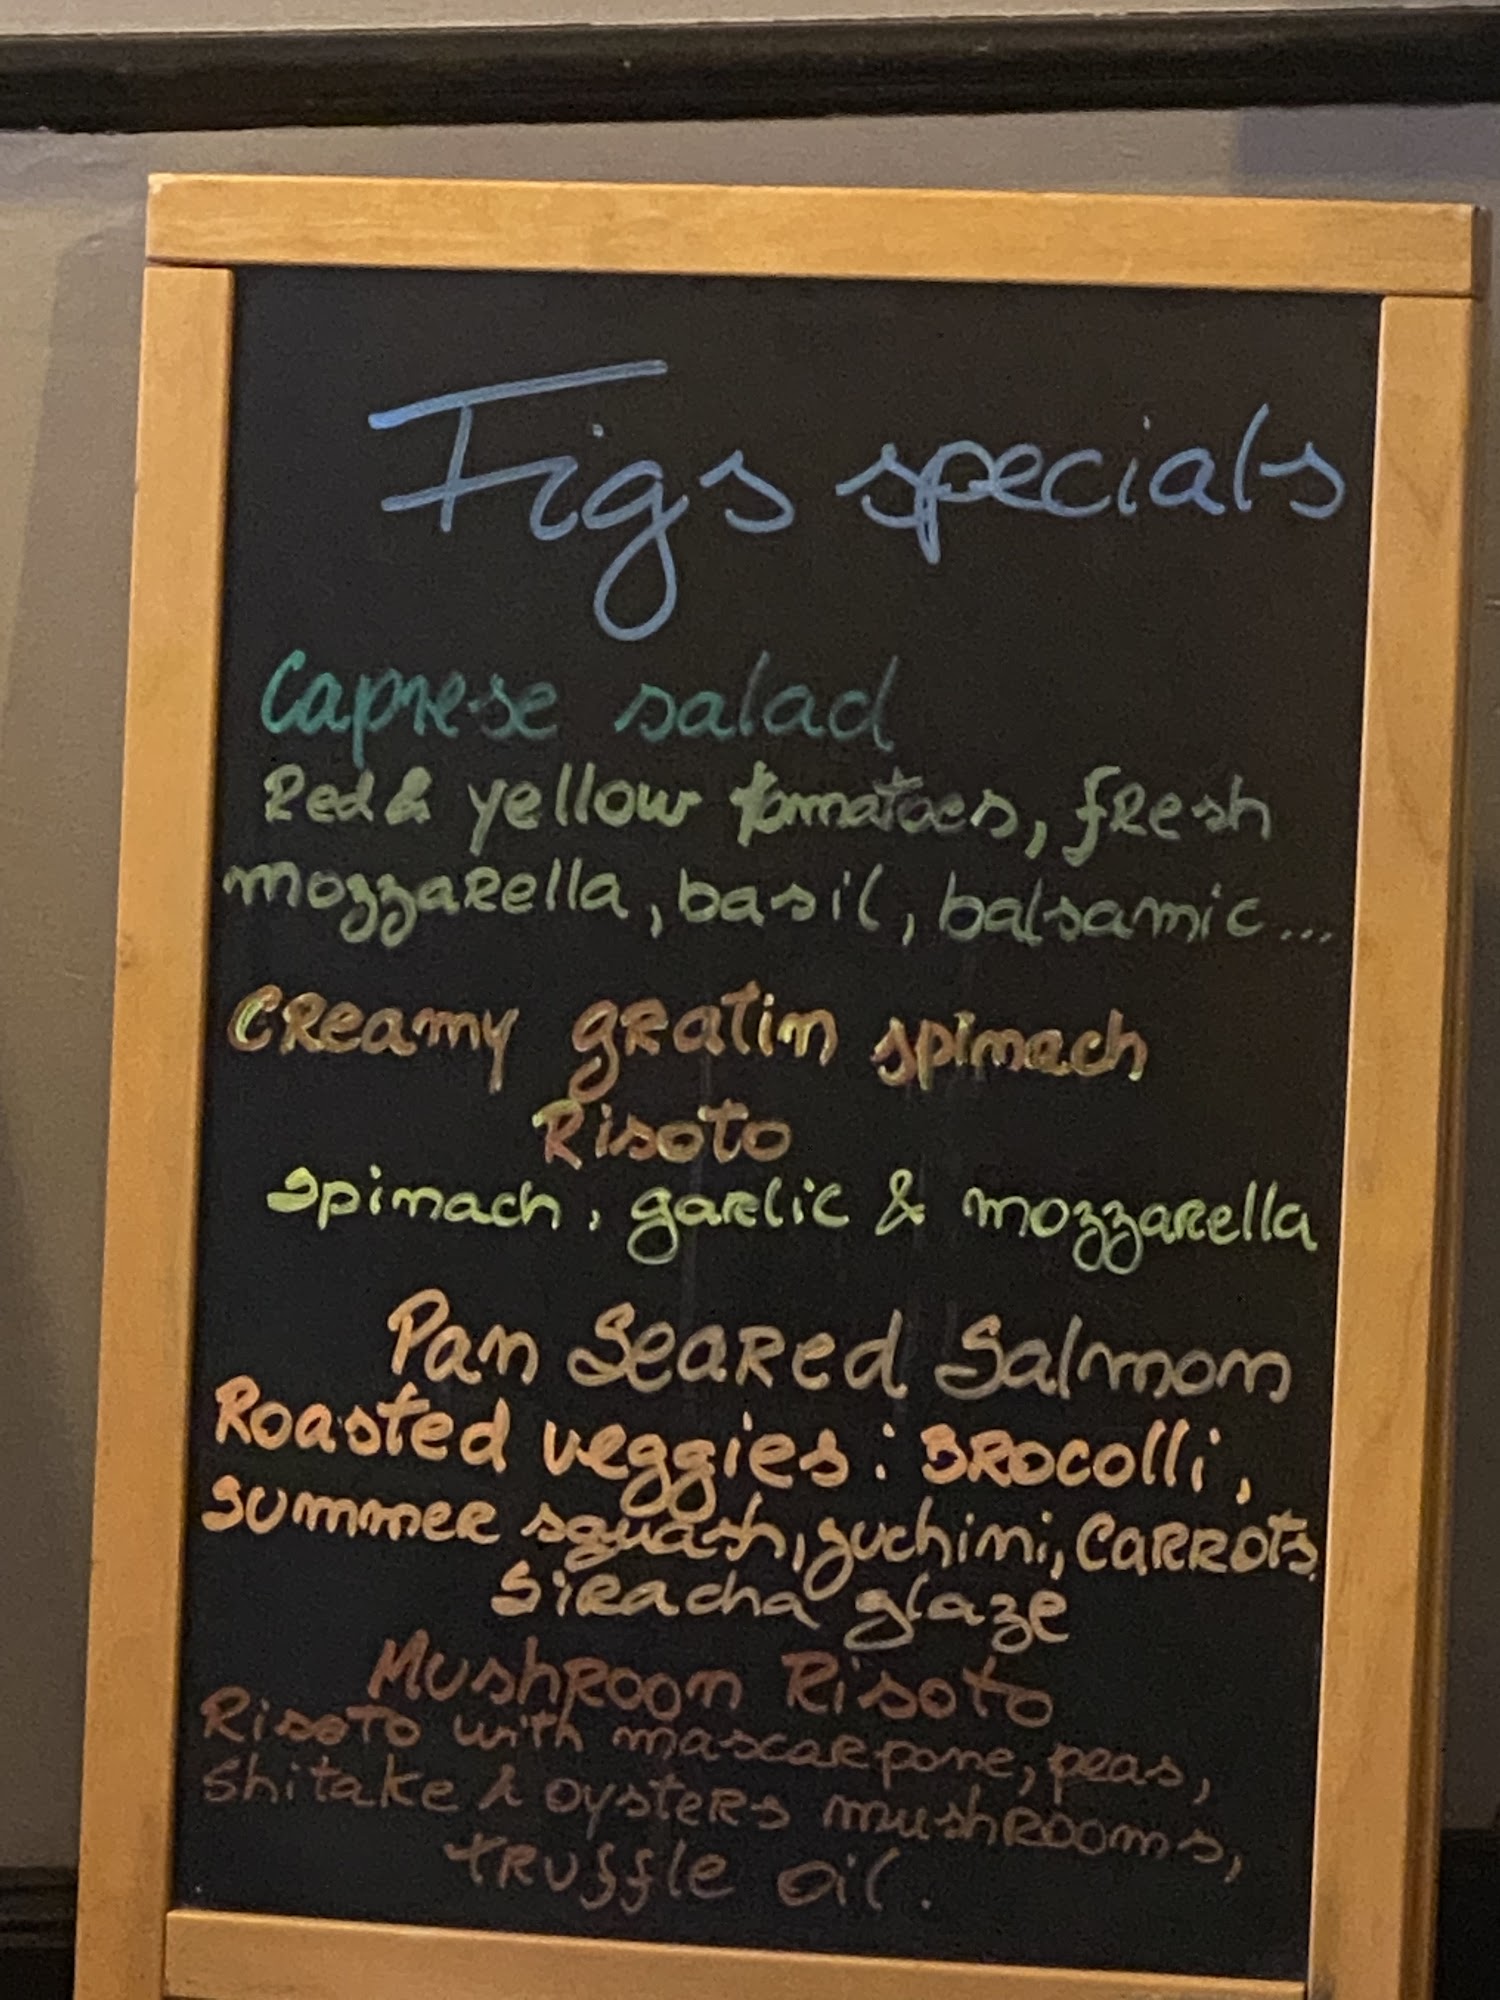 Figs specials
Caprese salad
Red & yellow tomatoes, fresh
mozzarella, basil, balsamic...
Creamy gratin spinach
Risoto
Spinach, garlic & mozzarella
Pan Seared Salmon
Roasted veggies: Brocolli,
summer squash, zuchini, carrots
Siracha glaze
Mushroom Risoto
Risoto with mascarpone, peas,
Shitake & oysters mushrooms,
truffle oil.